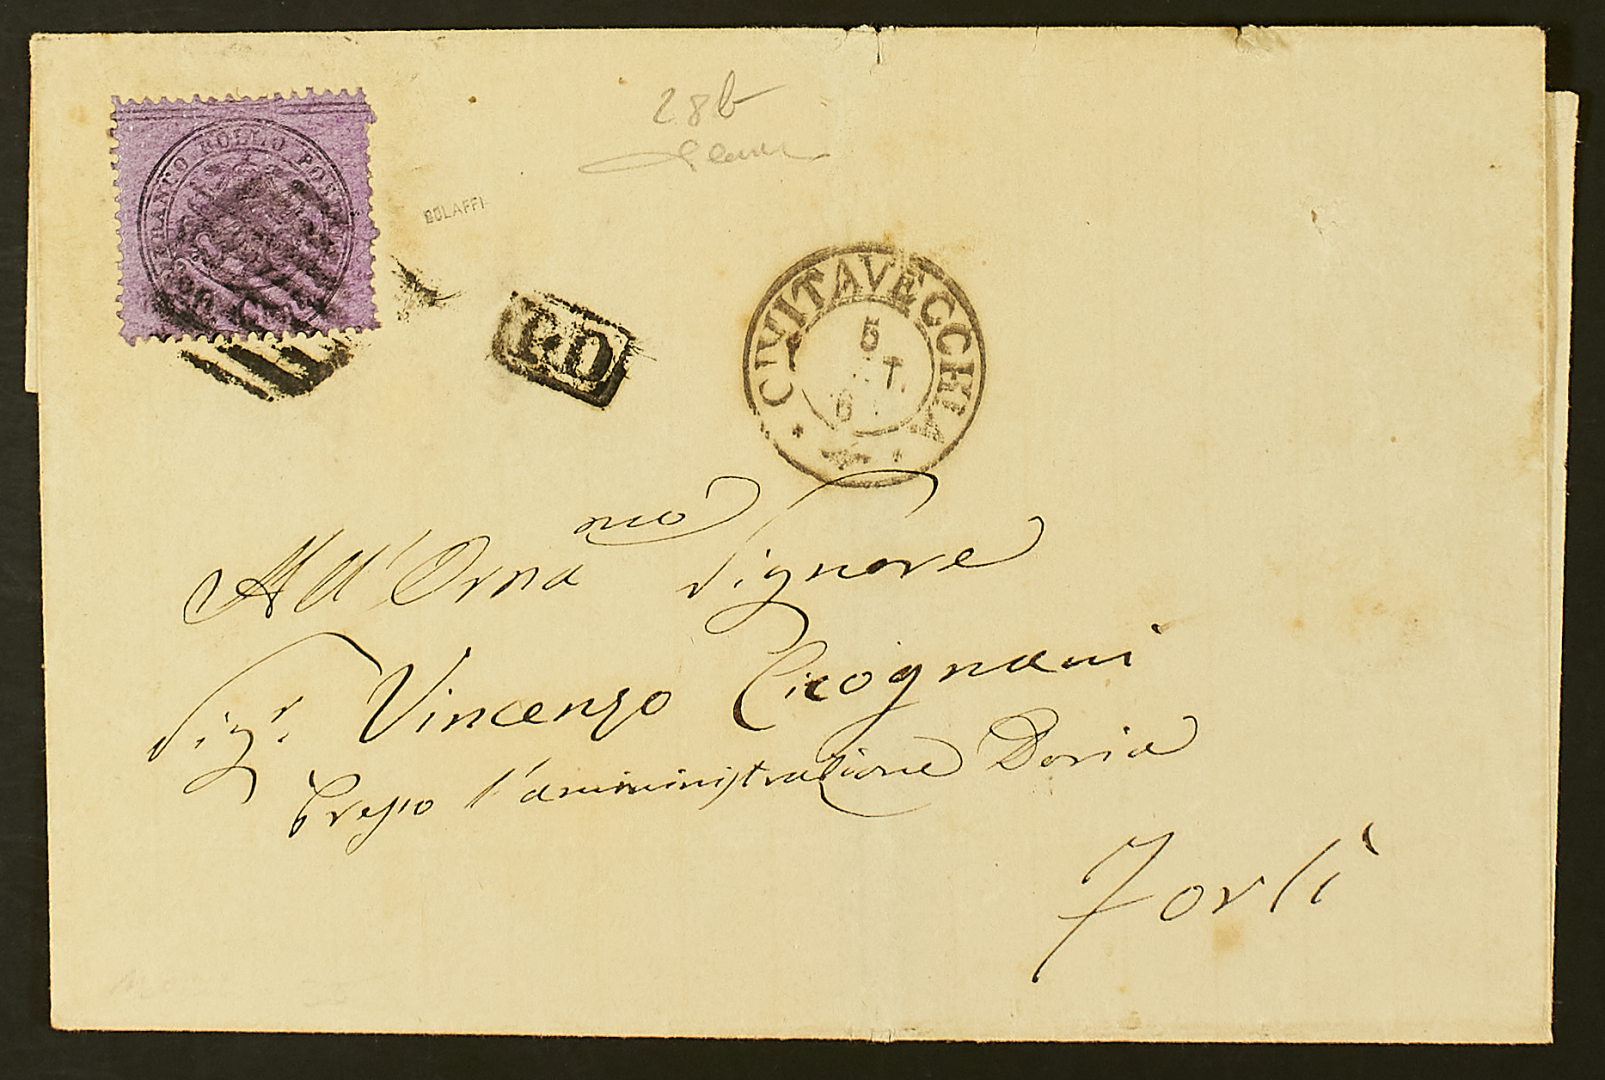 FRANCO BOLLO POSTALE
28b
BOLAFFI
P.D
CIVITAVECCHIA
5
T.
6
All'Orna mo Signore
Sigr. Vincenzo Cicognani
Presso l'amministrazione Doria
Forlì